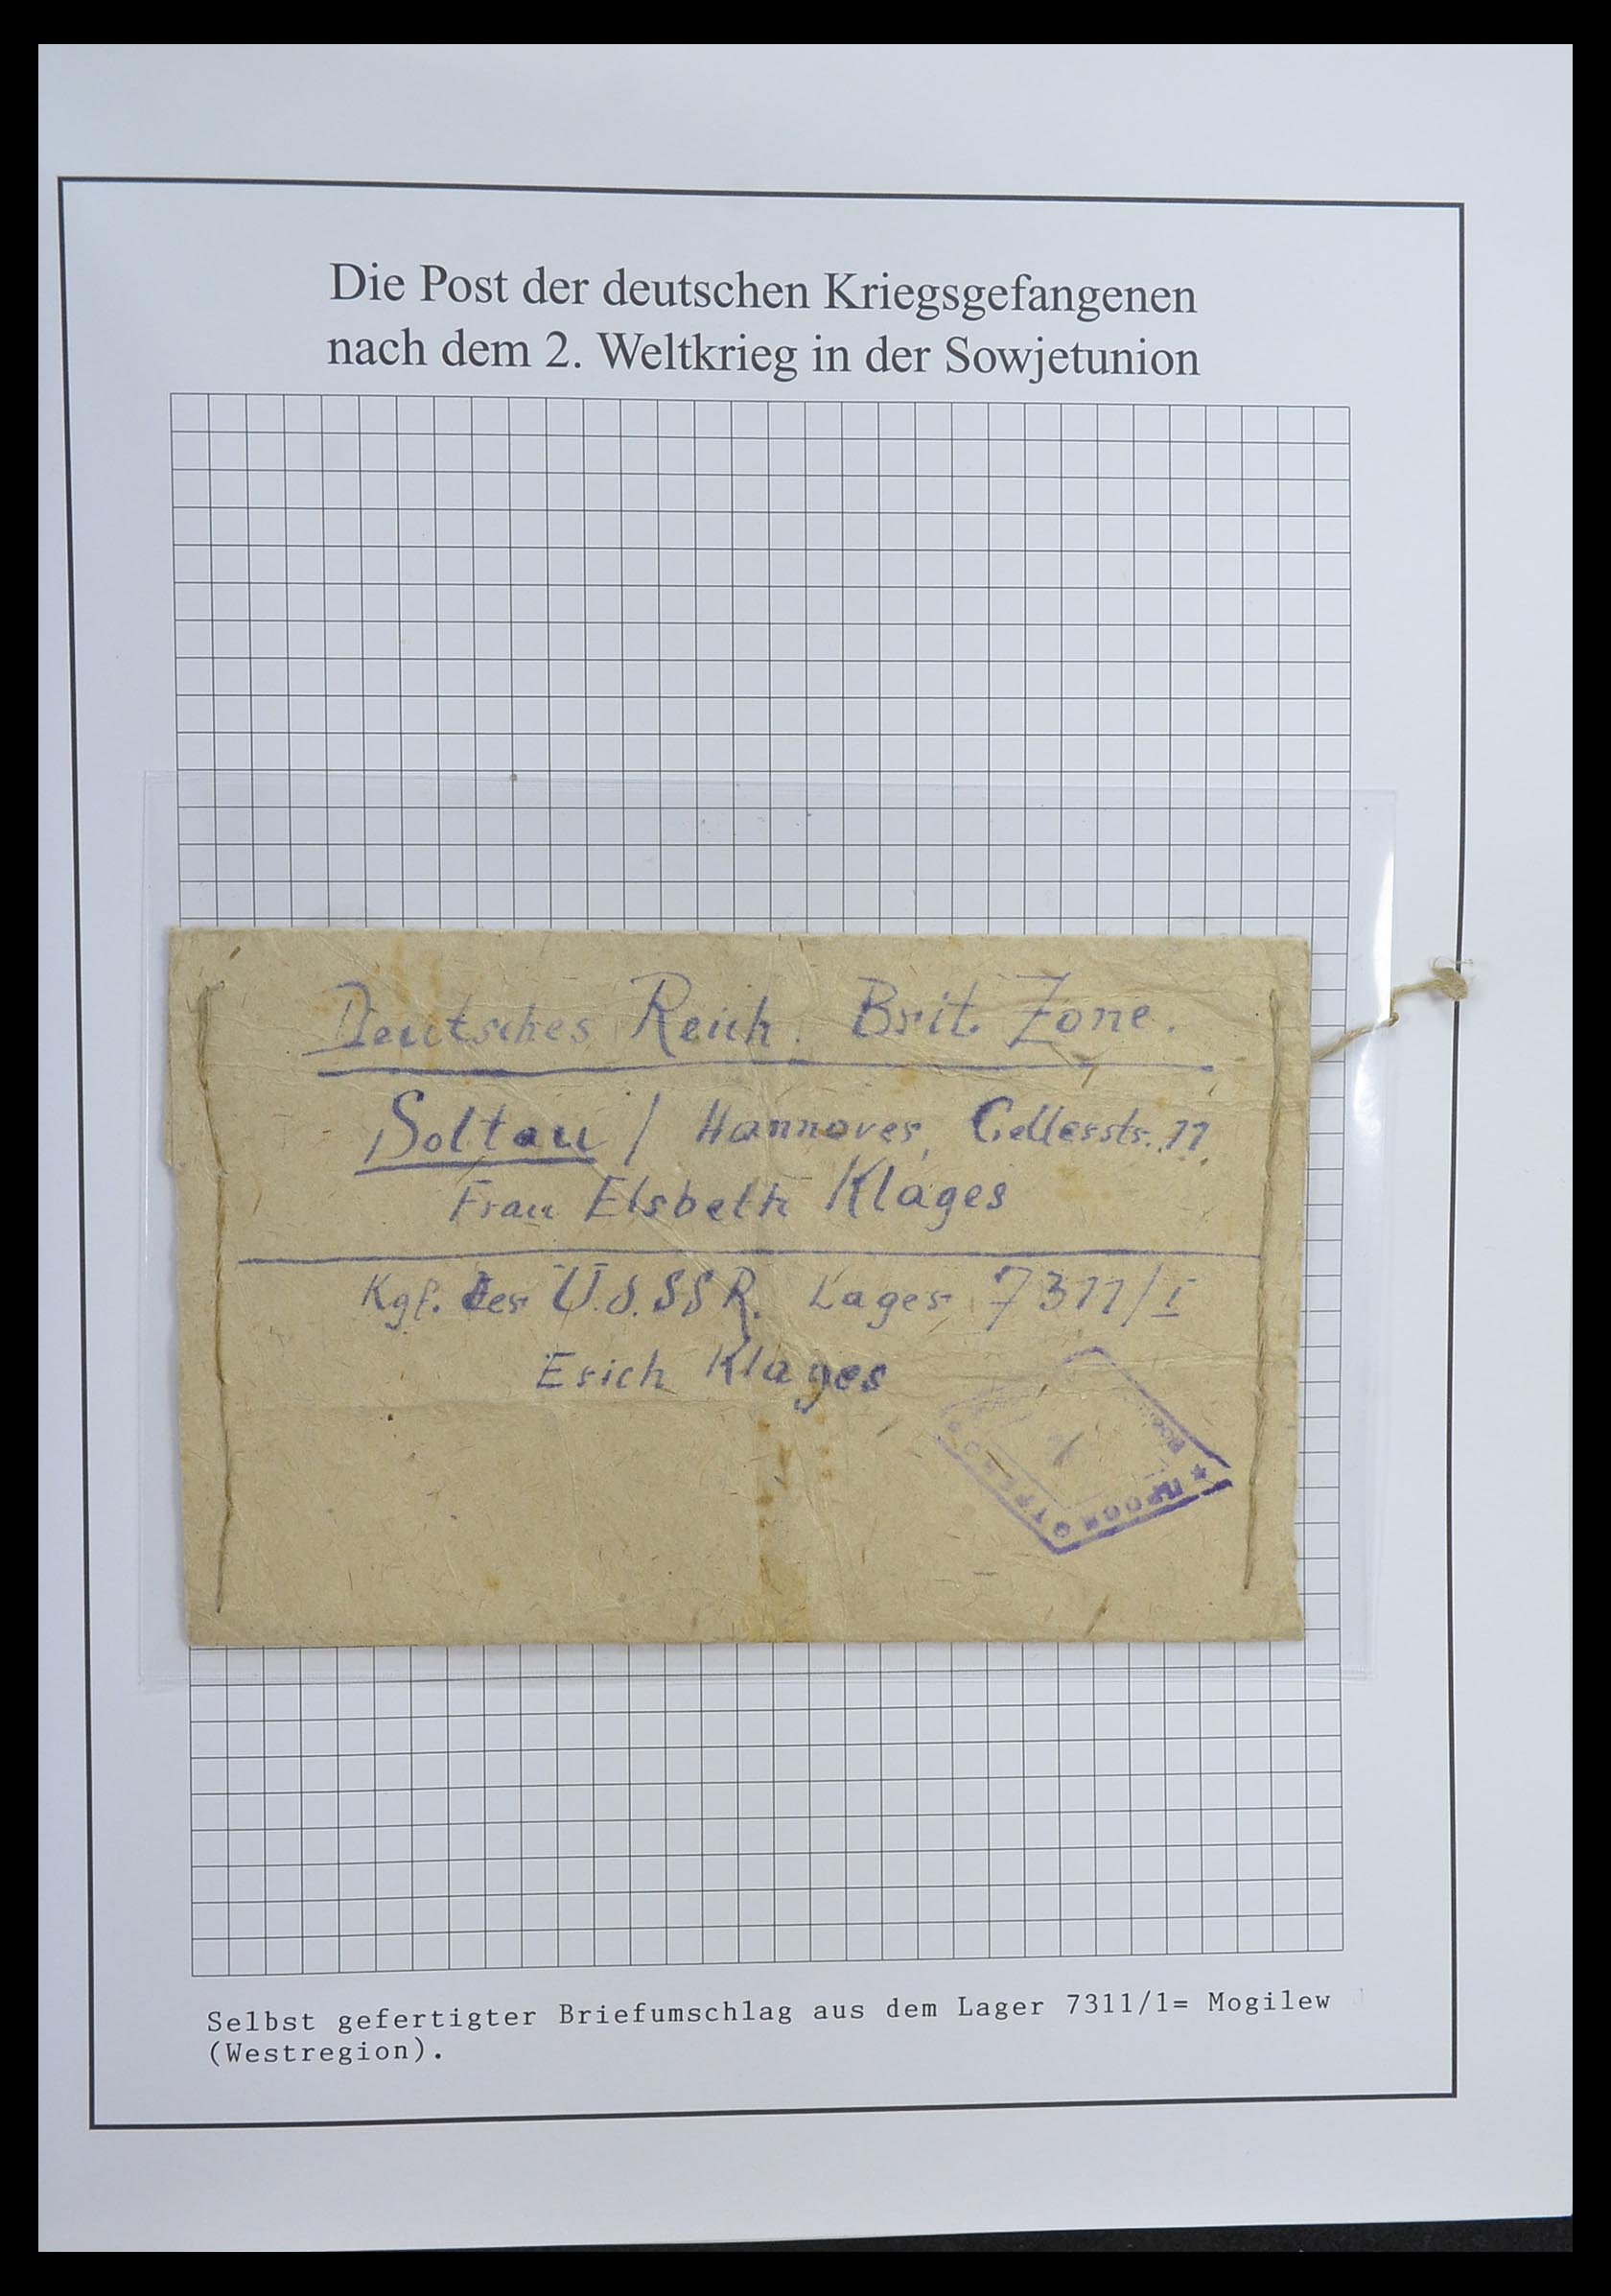 Die Post der deutschen Kriegsgefangenen
nach dem 2. Weltkrieg in der Sowjetunion
Deutsches Reich. Brit. Zone.
Soltau / Hannover, Cellerstr. 11.
Frau Elsbeth Klages
Kgf. der U.d.SSR. Lager 7311/I
Erich Klages
Selbst gefertigter Briefumschlag aus dem Lager 7311/1= Mogilew
(Westregion).